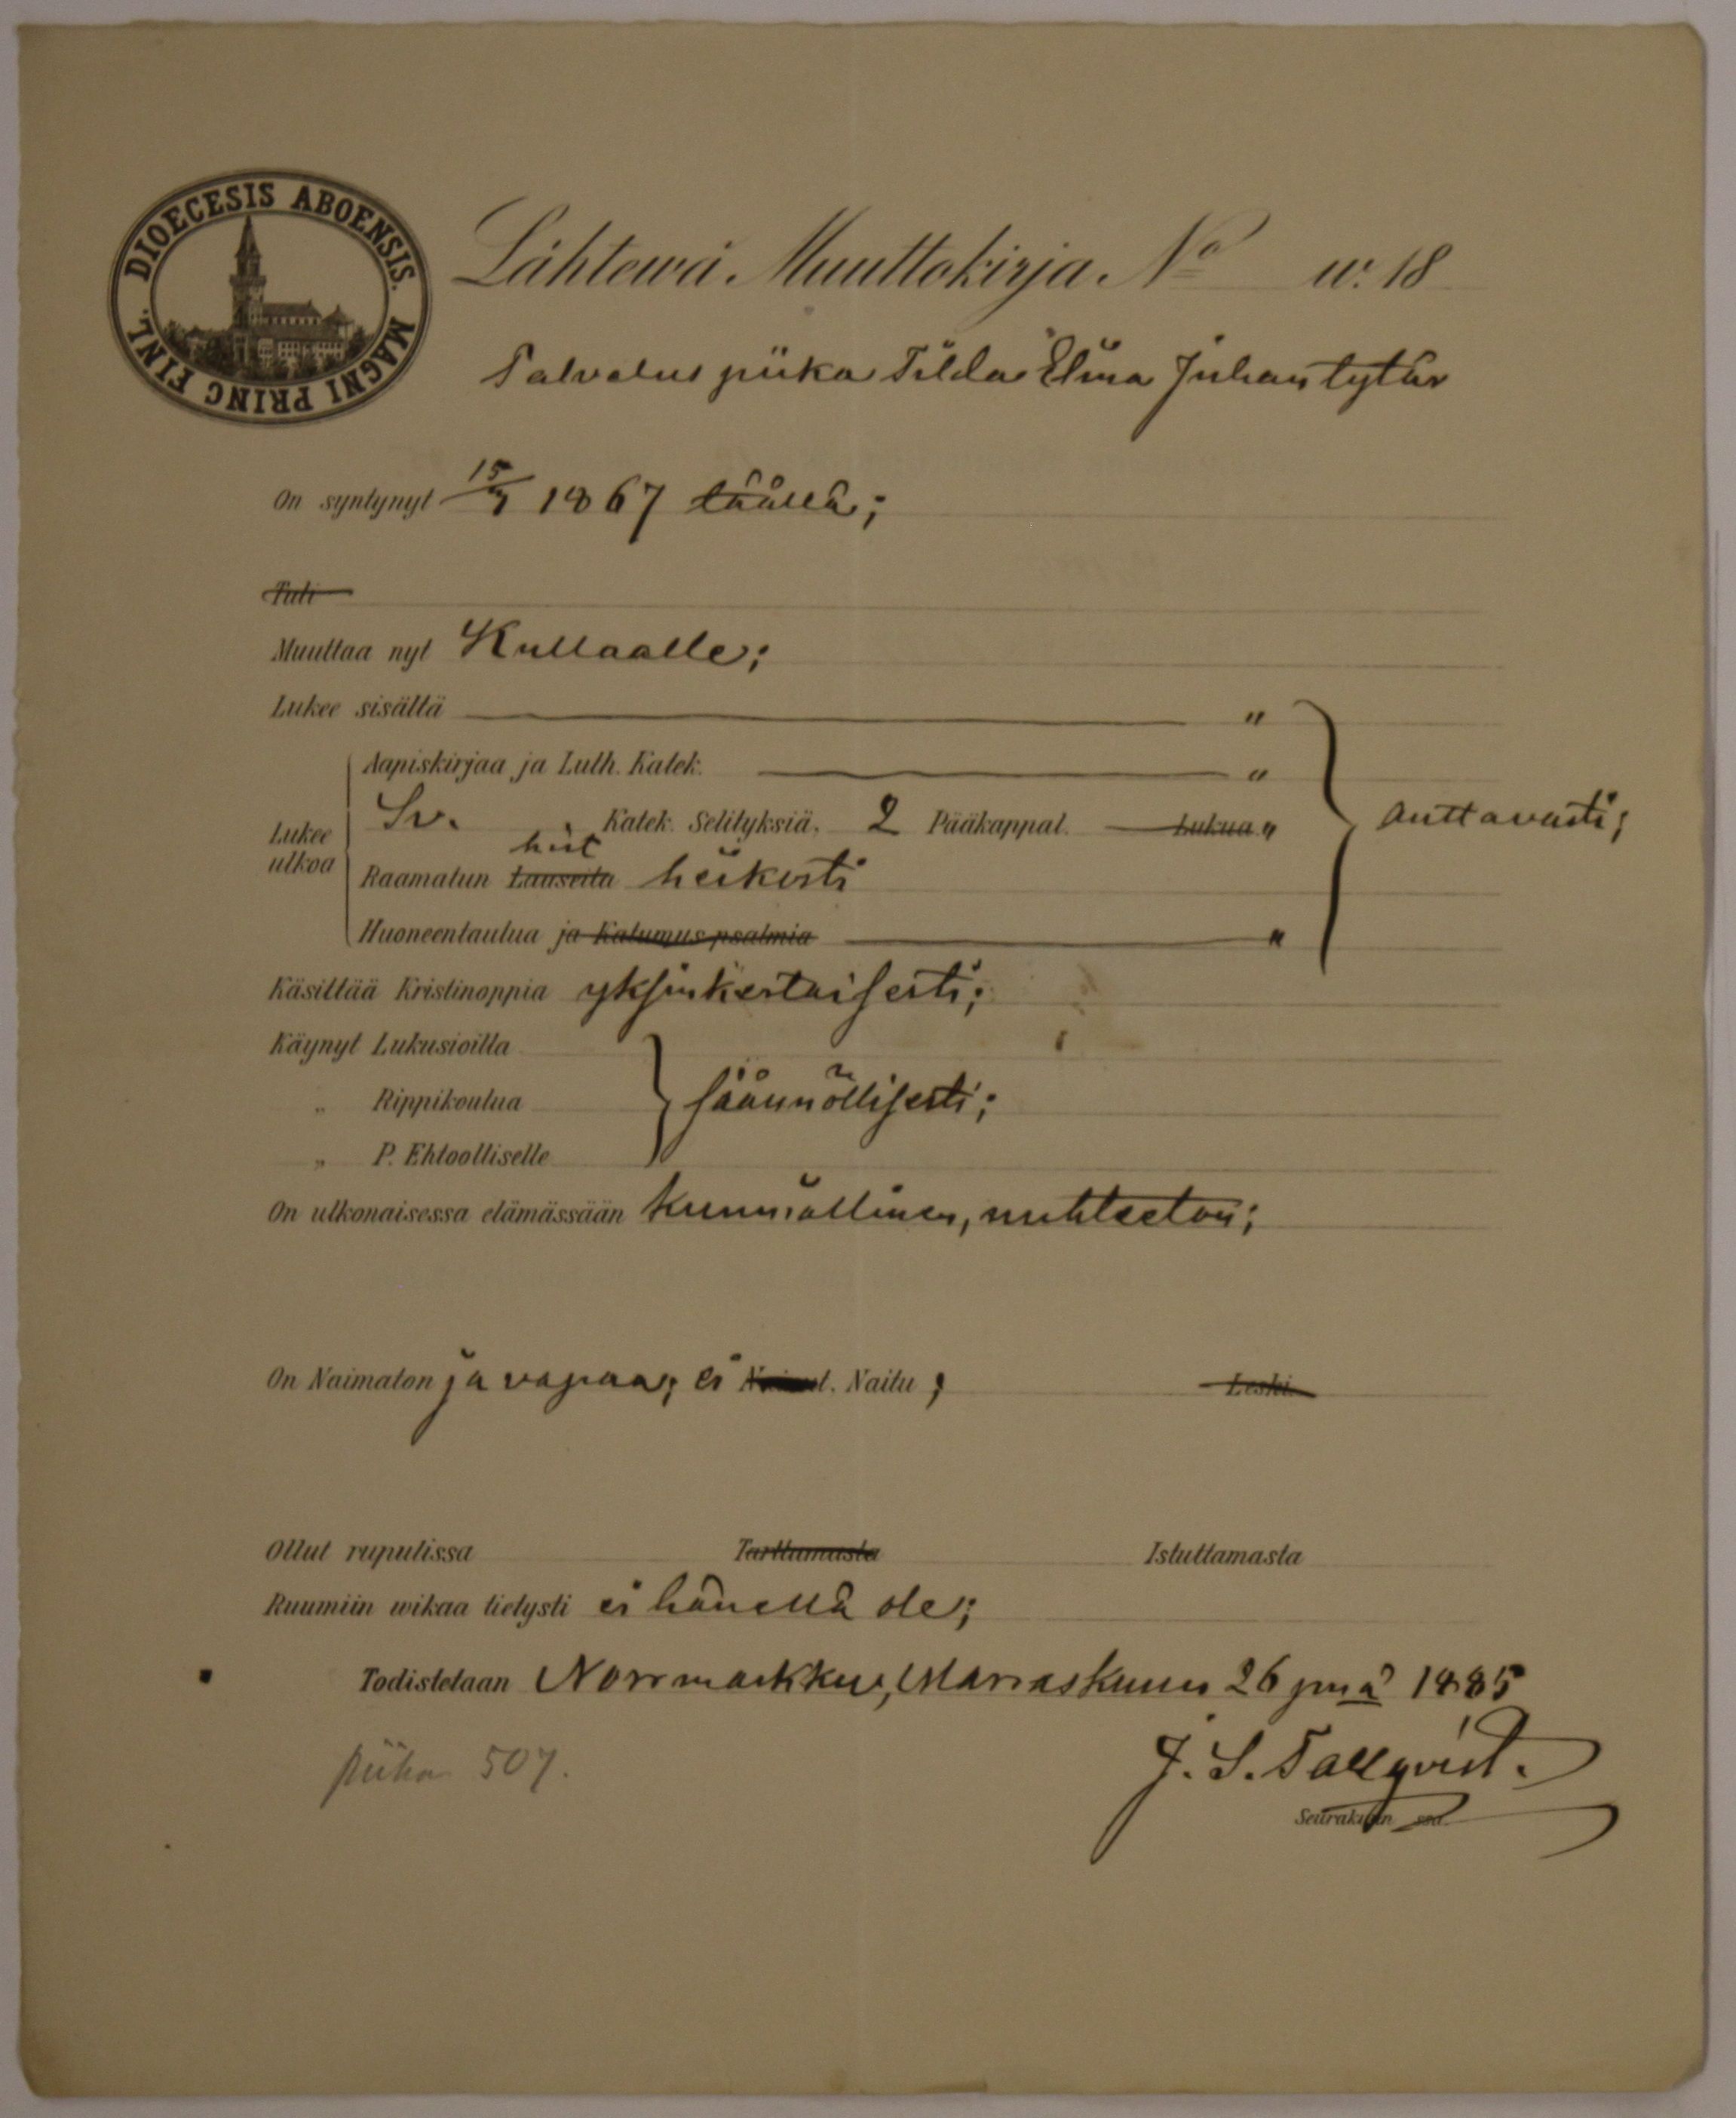 DIOECESIS ABOENSIS. MAGNI PRINC FINL.
Lähtewä Muuttokirja No w. 18
Palvelus piika Tilda Elina Juhantytär
On syntynyt 15/7 1867 täällä;
Tuli
Muuttaa nyt Kullaalle;
Lukee sisältä "
Aapiskirjaa ja Luth. Katek. "
Lukee ulkoa Sv. Katek. Selityksiä, 2 Pääkappal. Lukua " auttavasti;
hist
Raamatun Lauseita heikosti
Huoneentaulua ja Katumus psalmia "
Käsittää Kristinoppia yksinkertaisesti;
Käynyt Lukusioilla
" Rippikoulua säännöllisesti;
" P. Ehtoolliselle
On ulkonaisessa elämässään kunniallinen, nuhteeton;
On Naimaton ja vapaa; ei Naitu; Leski.
Ollut rupulissa Tarttumasta Istuttamasta
Ruumiin wikaa tietysti ei hänellä ole;
Todistetaan Norrmarkku, Marraskuun 26 pnä 1885
piika 507. J. S. Tallqvist.
Seurakunn ssa.